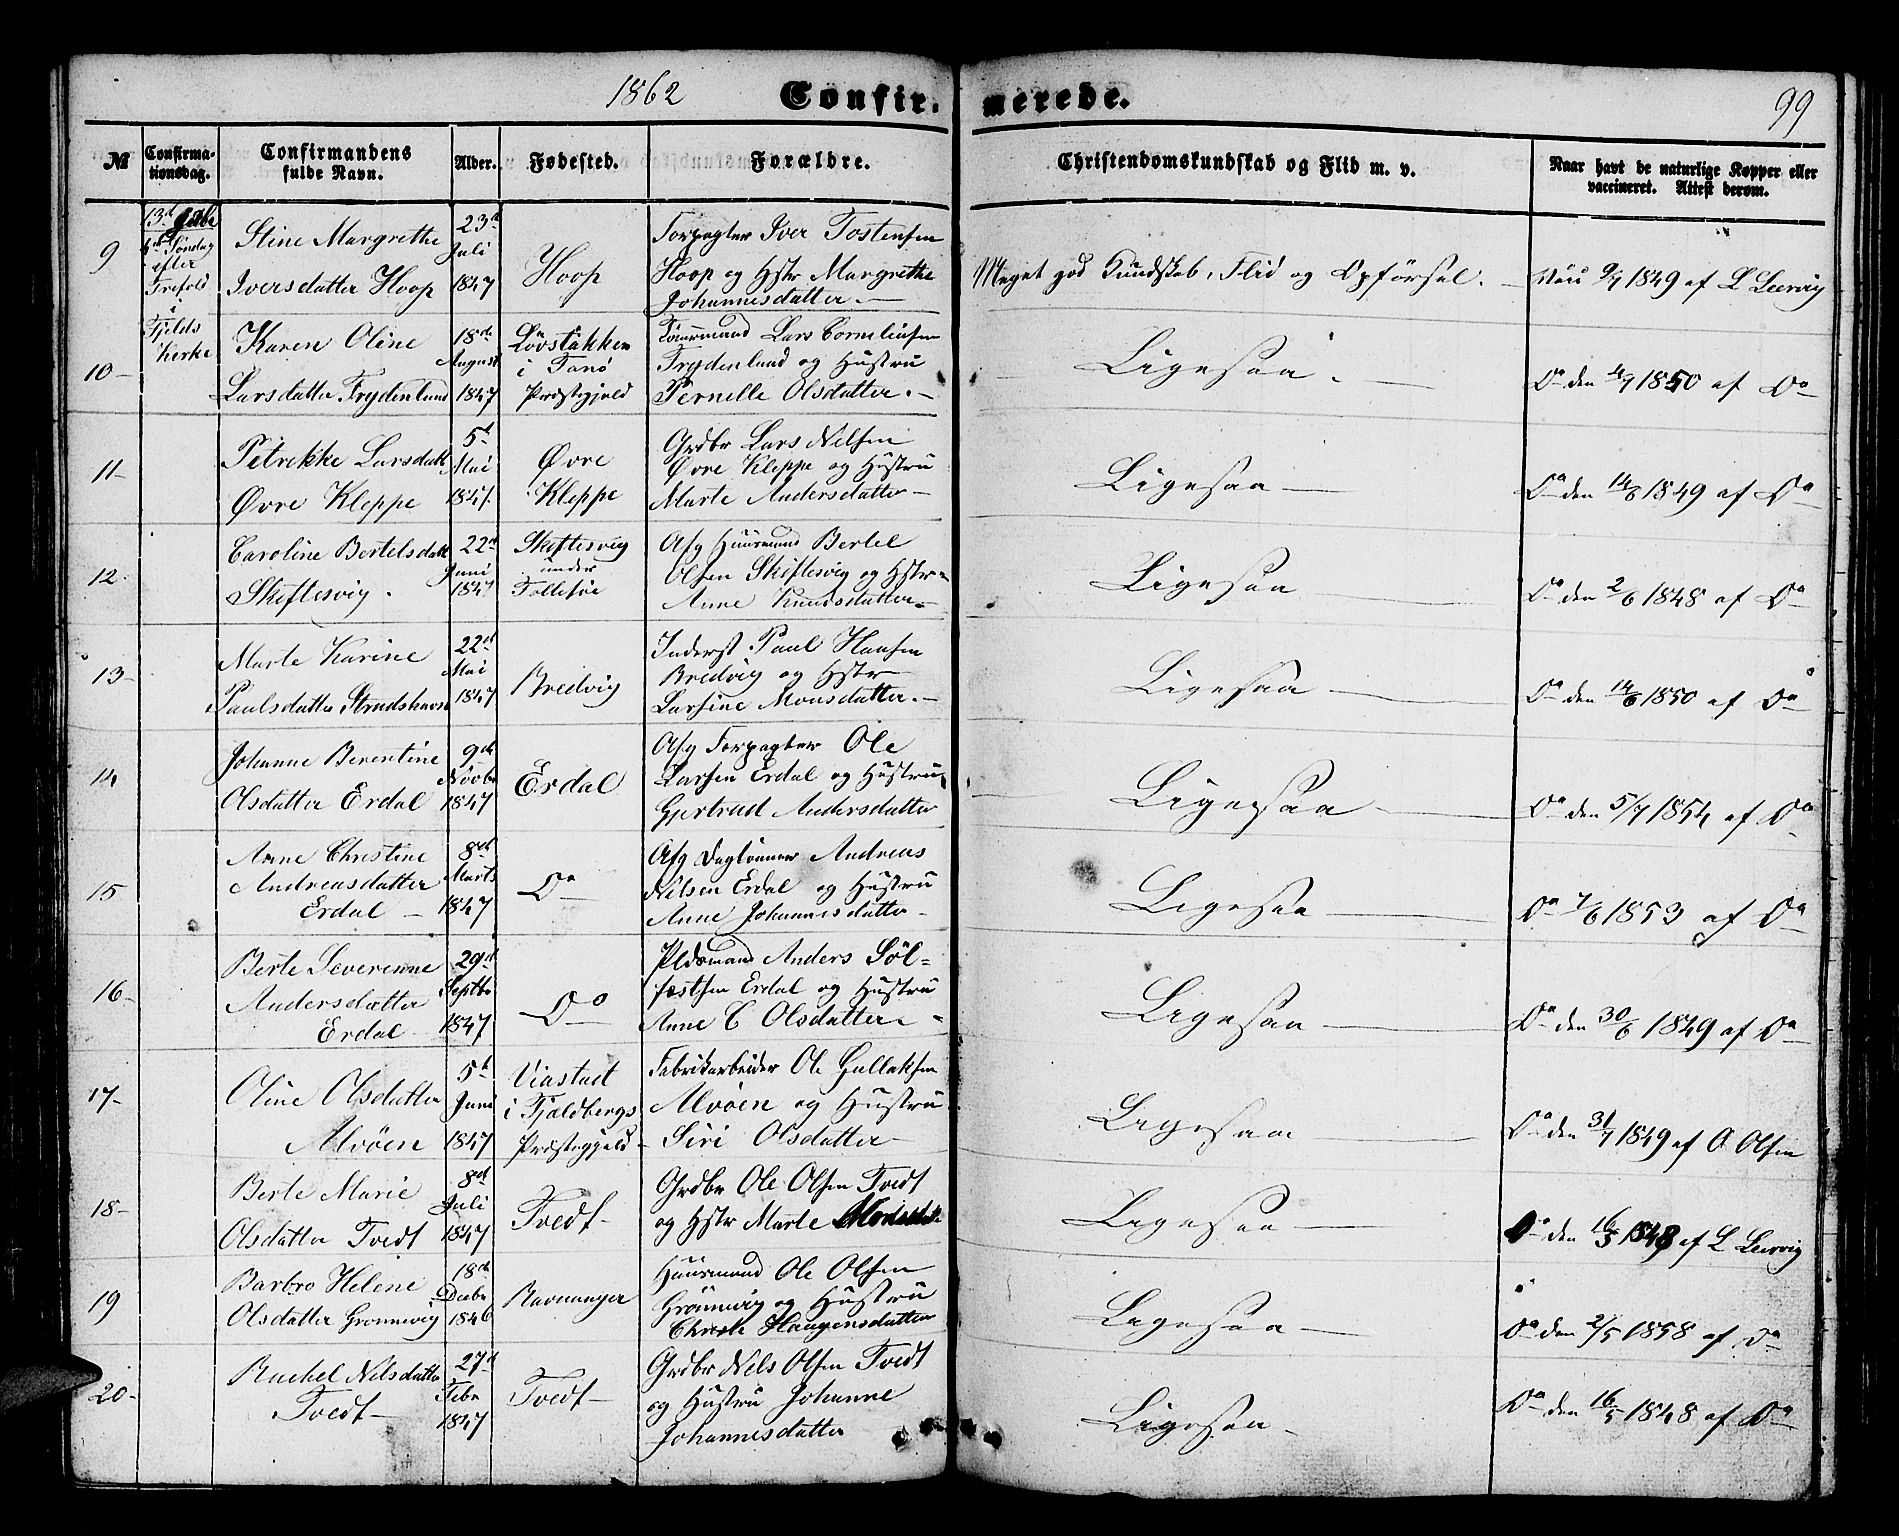 1862 Confirmerede. 99
№ Confirmationsdag. Confirmandens fulde Navn. Alder. Fødested. Forældre. Christendomskundskab og Flid m. v. Naar havt de naturlige Kopper eller vaccineret. Attest derom.
9
6te Søndag
efter
Trefold
i
Fjelds
Kirke
Stine Margrethe
Iversdatter Hoop
23d
Juli
1847
Hoop
Forpagter Iver Tostensen
Hoop og Hstr Margrethe
Johannesdatter. —
Meget god Kundskab, Flid og Opførsel. —
1849 af L Leervig
10 –
Karen Oline
Larsdatter Frydenlund
18de
August
1847
Løvstakken
i Fanø
Præstegjeld
Lars Corneliusen
Frydenlund og Hustru
Pernille Olsdatter. —
Ligesaa. —
Do den 4/7 1850 af Do
11 –
Petrikke Larsdatt
Øvre Kleppe
5t
Mai
1847.
Øvre
Kleppe
Grdbr Lars Nilsen
Øvre Kleppe og Hustru
Marte Andersdatter —
Ligesaa —
Do den 14/6 1849 af Do
12.
Caroline Bertelsdatt
Skiftesvig.
22d
Juni
1847
Skiftesvig
under
Follesøe
Afg Huusmand Bertel
Olsen Skiftesvig og Hstr
Anne Knudsdatter —
Ligesaa
Do den 2/6 1848 af Do
13 –
Marte Karine
Paulsdatter Strudshavn
22d
Mai
1847
Bredvig
Inderst Paul Hansen
Bredvig og Hstr
Larsine Monsdatter. —
Ligesaa —
Do den 14/6 1850 af Do
14
Johanne Berentine
Olsdatter Erdal
9de
Novbr
1847
Erdal
Afg Forpagter Ole
Larsen Erdal og Hustru
Gjertrud Andersdatter
Ligesaa —
Do den 5/7 1854 af Do
15
Anne Christine
Andreasdatter
Erdal —
8de
Marts
1847
Do
Afg Daglønner Andreas
Nilsen Erdal og Hustru
Anne Johannesdatter —
Ligesaa —
Do 7/6 1853 af Do
16 –
Berte Severinne
Andersdatter
Erdal
29d
Septbr
1847
Do
Pldsmand Anders Søl=
fæstsen Erdal og Hustru
Anne C Olsdatter —
Ligesaa —
Do den 30/6 1849 af Do
17 –
Oline Olsdatter
Alvøen
5d
Juni
1847
Viastad
i Fjældbergs
Præstegjeld
Fabrikarbeider Ole Gullaksen
Alvøen og Hustru
Siri Olsdatter
Ligesaa
Do den 31/7 1849 af O Olsen
18 –
Berte Marie
Olsdatter Tvedt
8de
Juli
1847
Tvedt –
Grdbr Ole Olsen Tvedt
og Hstr Marte
Ligesaa —
Do den 16/5 1848 af L Leervig
19
Barbro Helene
Olsdatter Grønnevig
18de
Decbr
1846
Ravnanger
Huusmand Ole Olsen
Grønnevig og Hustru
Haugensdatter
Ligesaa —
Do den 2/5 1858 af Do
20 –
Rachel Nilsdatter
Tvedt —
27d
Febr
1847
Tvedt —
Grdbr Nels Olsen Tvedt
og Hustru Johanne
Johannesdatter
Ligesaa —
Do den 16/5 1848 af Do